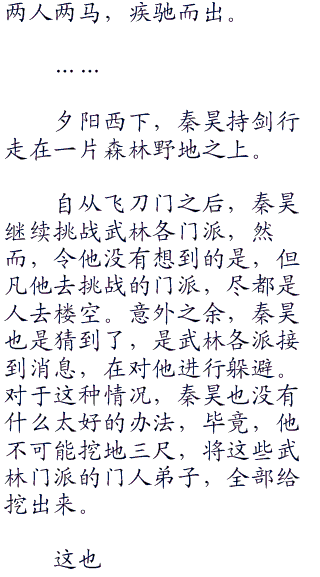 两人两马，疾驰而出。
……
夕阳西下，秦昊持剑行
走在一片森林野地之上。
自从飞刀门之后，秦昊
继续挑战武林各门派，然
而，令他没有想到的是，但
凡他去挑战的门派，尽都是
人去楼空。意外之余，秦昊
也是猜到了，是武林各派接
到消息，在对他进行躲避。
对于这种情况，秦昊也没有
什么太好的办法，毕竟，他
不可能挖地三尺，将这些武
林门派的门人弟子，全部给
挖出来。
这也